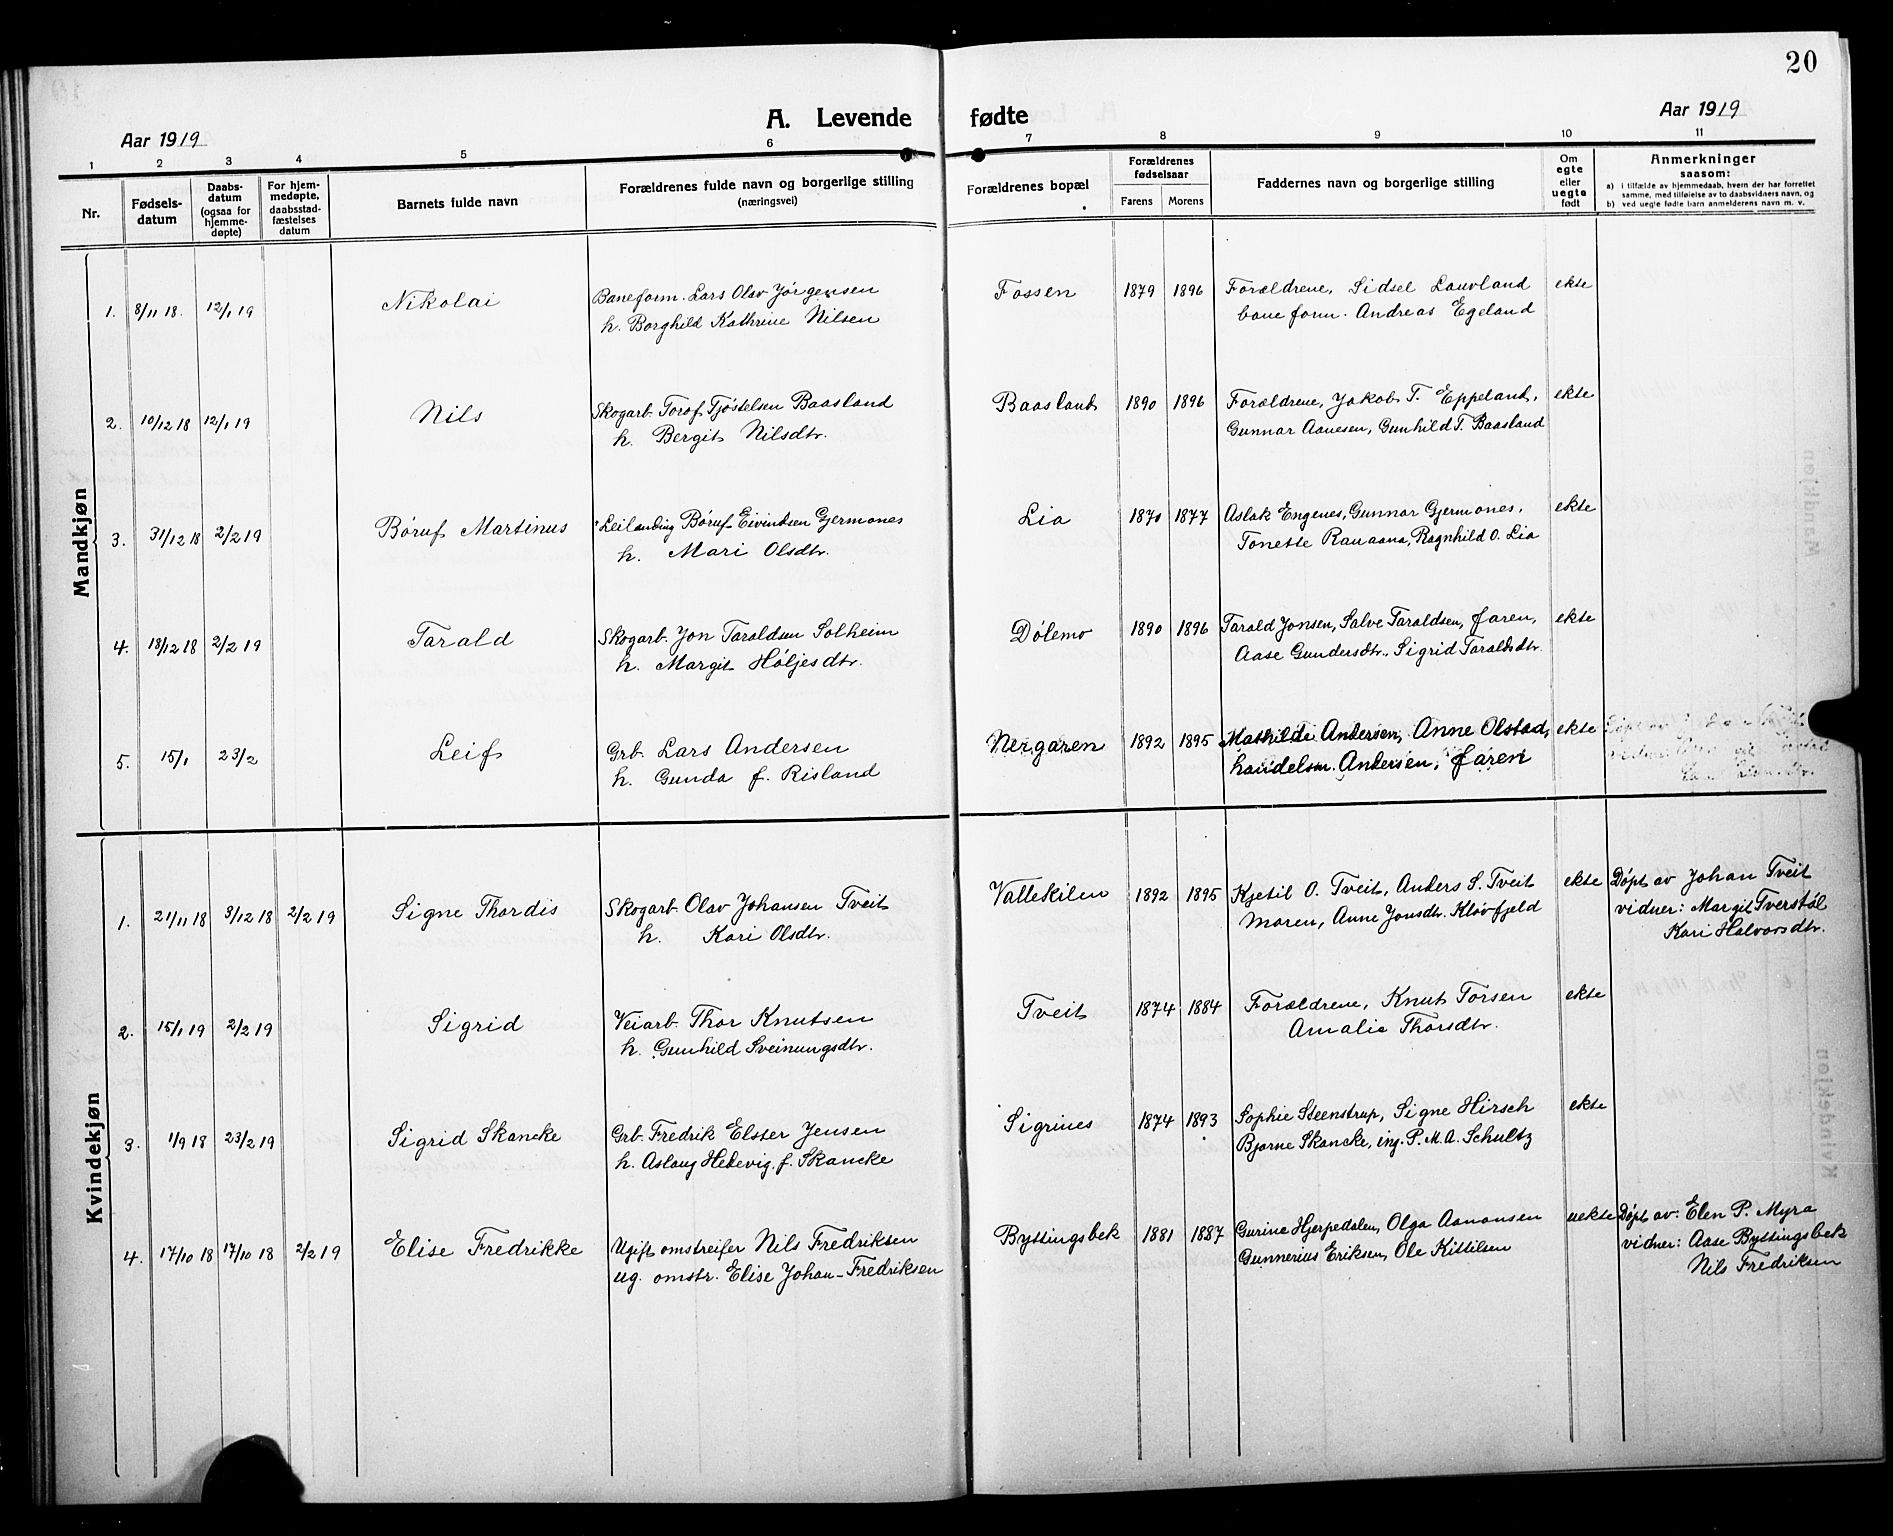 20
A. Levende fødte
Aar 1919
Aar 1919
1 2 3 4 5 6 7 8 9 10 11
Nr.
Fødsels-
datum
Daabs-
datum
(ogsaa for
hjemme-
døpte)
For hjem-
medøpte,
daabsstad-
fæstelses
datum
Barnets fulde navn
Forældrenes fulde navn og borgerlige stilling
(næringsvei)
Forældrenes bopæl
Forældrenes
fødselsaar
Farens Morens
Faddernes navn og borgerlige stilling
Om
egte
eller
uegte
født
Anmerkninger
saasom:
a) i tilfælde av hjemmedaab, hvem der har forrettet
samme, med tilføielse av to daabsvidners navn, og
b) ved uegte fødte barn anmelderens navn m. v.
Mandkjøn
1. 8/11 18. 12/1 19 Nikolai Baneform. Lars Olav Jórgensen Fossen 1879 1896 Forældrene, Sidsel Lauvland ekte
h. Borghild Kathrine Nilsen baneform. Andreas Egeland
2. 10/12 18 12/1 19 Nils Skogarb. Torof Tjóstelsen Baasland Baasland 1890 1896 Forældrene, Jakob T. Eppeland, ekte
h. Bergit Nilsdtr. Gunnar Aanesen, Gunhild T. Baasland
3. 31/12 18 2/2 19 Bóruf Martinus Leilending Bóruf Eivindsen Gjermones Lia 1870 1877 Aslak Engenes, Gunnar Gjermones, ekte
h. Mari Olsdtr. Tonette Rauaana, Ragnhild O. Lia
4. 18/12 18 2/2 19 Tarald Skogarb. Jon Taraldsen Solheim Dólemo 1890 1896 Tarald Jonsen, Salve Taraldsen, faren, ekte
h. Margit Hóljesdtr. Aase Gundersdtr., Sigrid Taraldsdtr.
5. 15/1 23/2 Leif Grb. Lars Andersen Nergaren 1892 1895 Mathilde Andersen, Anne Olstad, ekte
h. Gunda f. Risland handelsm. Andersen, faren
Kvindekjøn
1. 21/11 18 3/12 18 2/2 19 Signe Thordis Skogarb. Olav Johansen Tveit Vallekilen 1892 1895 Kjetil O. Tveit, Anders S. Tveit ekte Dópt av Johan Tveit
h. Kari Olsdtr. moren, Anne Jonsdtr. Klóvfjeld vidner: Margit Tverstól
Kari Halvorsdtr.
2. 15/1 19 2/2 19 Sigrid Veiarb. Thor Knutsen Tveit 1874 1884 Forældrene, Knut Torsen ekte
h. Gunhild Sveinungsdtr. Amalie Thorsdtr.
3. 1/9 18 23/2 19 Sigrid Skancke Grb. Fredrik Elster Jensen Sigrines 1874 1893 Sophie Steenstrup, Signe Hirsch ekte
h. Aslaug Hedevig f. Skancke Bjarne Skancke, ing. P. M. A. Schultz
4. 17/10 18 17/10 18 2/2 19 Elise Fredrikke Ugift omstreifer Nils Fredriksen Byttingsbek 1881 1887 Gurine Hjerpedalen, Olga Aanonsen uekte Dópt av: Elen P. Myra
ug. omstr. Elise Johan-Fredriksen Gunnerius Eriksen, Ole Kittilsen vidner: Aase Byttingsbek
Nils Fredriksen